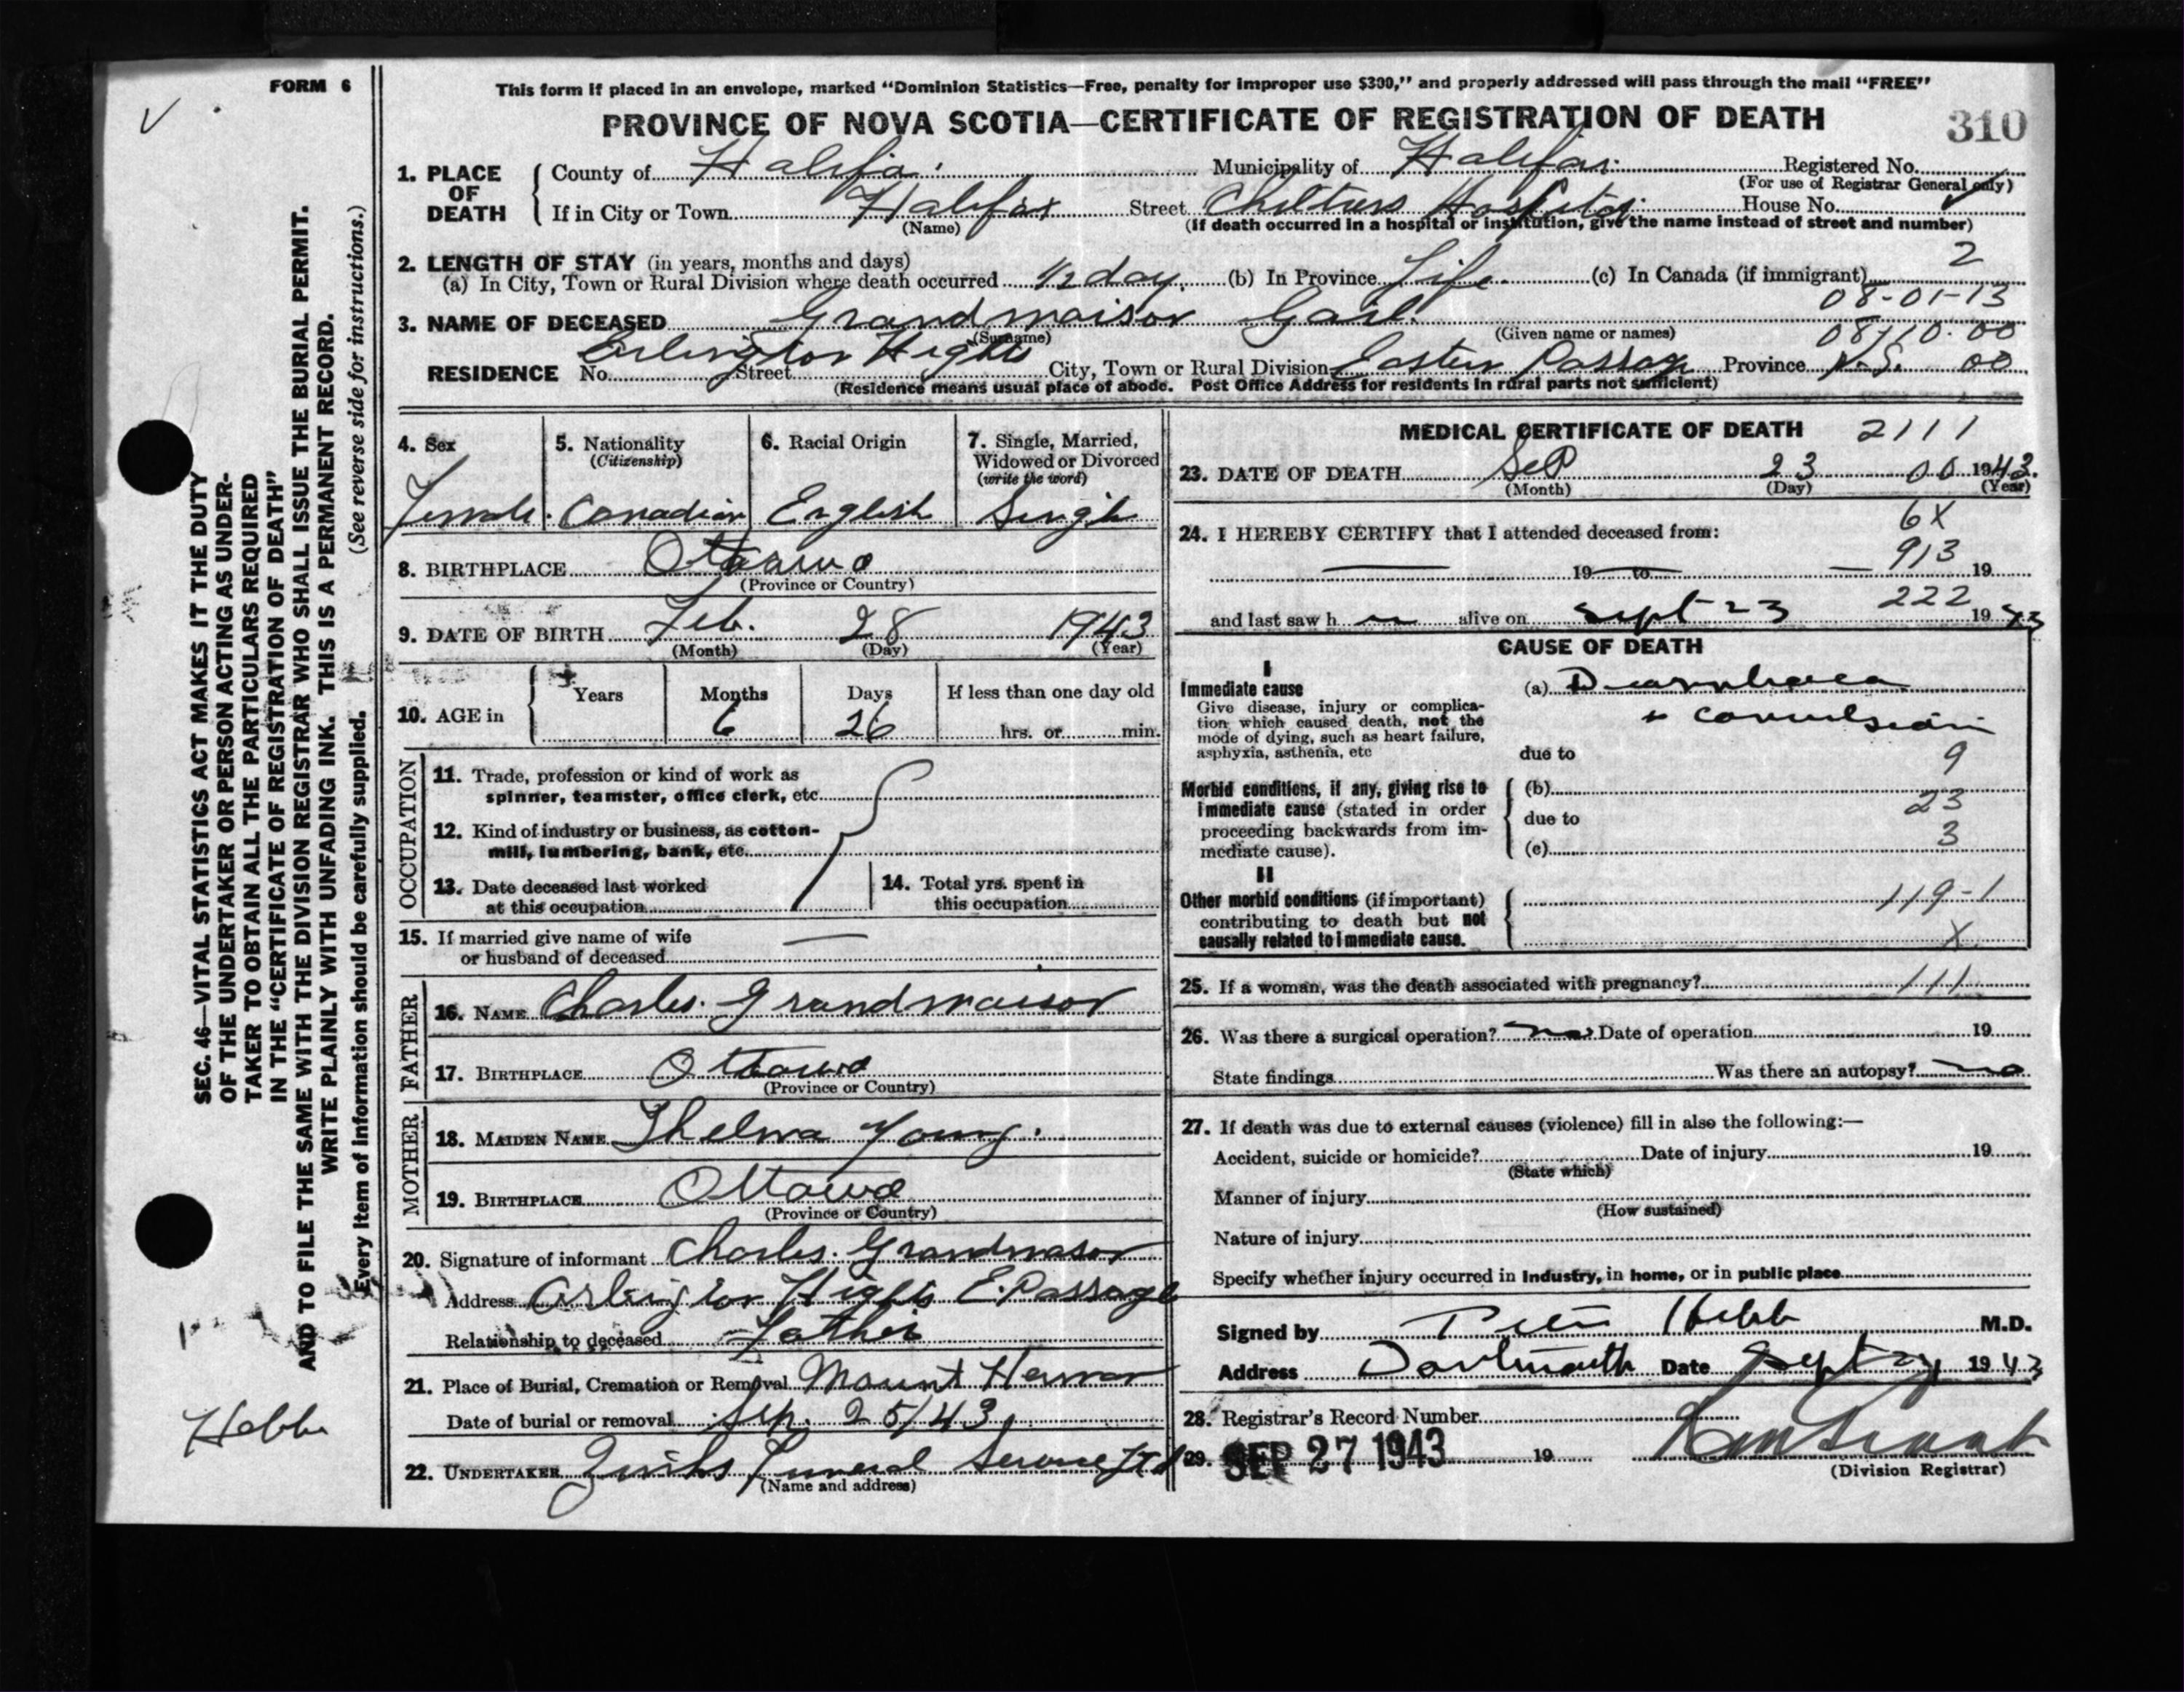 FORM 6
This form if placed in an envelope, marked "Dominion Statistics—Free, penalty for improper use $300," and properly addressed will pass through the mail "FREE"
PROVINCE OF NOVA SCOTIA—CERTIFICATE OF REGISTRATION OF DEATH
310
1. PLACE OF DEATH
County of Halifax Municipality of Halifax Registered No.
(For use of Registrar General only)
If in City or Town Halifax Street Childrens Hospital House No.
(Name) (If death occurred in a hospital or institution, give the name instead of street and number)
2. LENGTH OF STAY (in years, months and days) 2
(a) In City, Town or Rural Division where death occurred 1/2 day. (b) In Province Life (c) In Canada (if immigrant)
08-01-13
3. NAME OF DECEASED Grandmaison Gail
(Surname) (Given name or names) 08-10-00
RESIDENCE No. Street Arlington Hights City, Town or Rural Division Eastern Passage Province N.S. 00
(Residence means usual place of abode. Post Office Address for residents in rural parts not sufficient)
4. Sex
Female
5. Nationality
(Citizenship)
Canadian
6. Racial Origin
English
7. Single, Married, Widowed or Divorced
(write the word)
Single
8. BIRTHPLACE Ottawa
(Province or Country)
9. DATE OF BIRTH Feb. 28 1943
(Month) (Day) (Year)
10. AGE in
Years Months Days If less than one day old
6 26 hrs. or min.
OCCUPATION
11. Trade, profession or kind of work as
spinner, teamster, office clerk, etc.
12. Kind of industry or business, as cotton-
mill, lumbering, bank, etc.
13. Date deceased last worked
at this occupation
14. Total yrs. spent in
this occupation
15. If married give name of wife
or husband of deceased —
FATHER
16. NAME Charles Grandmaison
17. BIRTHPLACE Ottawa
(Province or Country)
MOTHER
18. MAIDEN NAME Thelma Young
19. BIRTHPLACE Ottawa
(Province or Country)
20. Signature of informant Charles Grandmaison
Address Arlington Hights E. Passage
Relationship to deceased Father
21. Place of Burial, Cremation or Removal Mount Herman
Date of burial or removal Sep. 25/43
22. UNDERTAKER Funeral Service Ltd
(Name and address)
MEDICAL CERTIFICATE OF DEATH 2111
23. DATE OF DEATH Sep 23 00 1943.
(Month) (Day) (Year)
6X
24. I HEREBY CERTIFY that I attended deceased from:
913
— 19 to — 19
222
and last saw h alive on Sept 23 19 43
CAUSE OF DEATH
I
Immediate cause
Give disease, injury or complica-
tion which caused death, not the
mode of dying, such as heart failure,
asphyxia, asthenia, etc
(a) Diarrhoea
+ convulsion
due to
9
Morbid conditions, if any, giving rise to
immediate cause (stated in order
proceeding backwards from im-
mediate cause).
(b)
23
due to
3
(c)
II
Other morbid conditions (if important)
contributing to death but not
causally related to immediate cause.
119-1
X
25. If a woman, was the death associated with pregnancy? 111
26. Was there a surgical operation? no Date of operation 19
State findings Was there an autopsy? no
27. If death was due to external causes (violence) fill in also the following:—
Accident, suicide or homicide? Date of injury 19
(State which)
Manner of injury
(How sustained)
Nature of injury
Specify whether injury occurred in industry, in home, or in public place
Signed by Hebb M.D.
Address Dartmouth Date Sept 1943
28. Registrar's Record Number
29. SEP 27 1943 19
(Division Registrar)
SEC. 46—VITAL STATISTICS ACT MAKES IT THE DUTY
OF THE UNDERTAKER OR PERSON ACTING AS UNDER-
TAKER TO OBTAIN ALL THE PARTICULARS REQUIRED
IN THE "CERTIFICATE OF REGISTRATION OF DEATH"
AND TO FILE THE SAME WITH THE DIVISION REGISTRAR WHO SHALL ISSUE THE BURIAL PERMIT.
WRITE PLAINLY WITH UNFADING INK. THIS IS A PERMANENT RECORD.
Every item of information should be carefully supplied. (See reverse side for instructions.)